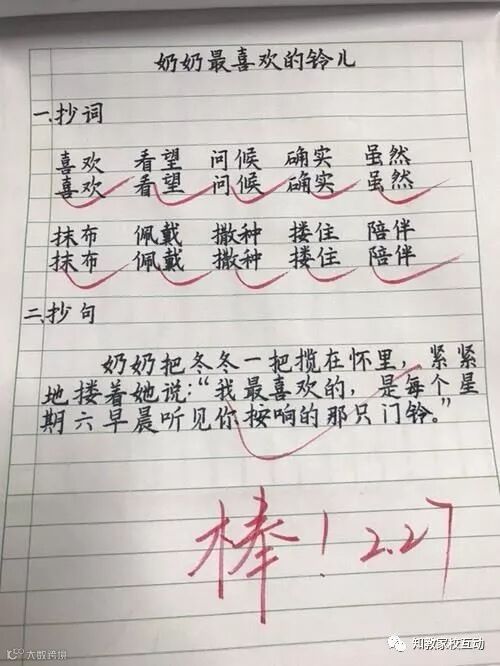 奶奶最喜欢的铃儿
一、抄词
喜欢 看望 问候 确实 虽然
喜欢 看望 问候 确实 虽然
抹布 佩戴 撒种 搂住 陪伴
抹布 佩戴 撒种 搂住 陪伴
二、抄句
奶奶把冬冬一把揽在怀里，紧紧
地搂着她说：“我最喜欢的，是每个星
期六早晨听见你按响的那只门铃。”
棒！2.27
大数跨境
知教家校互动